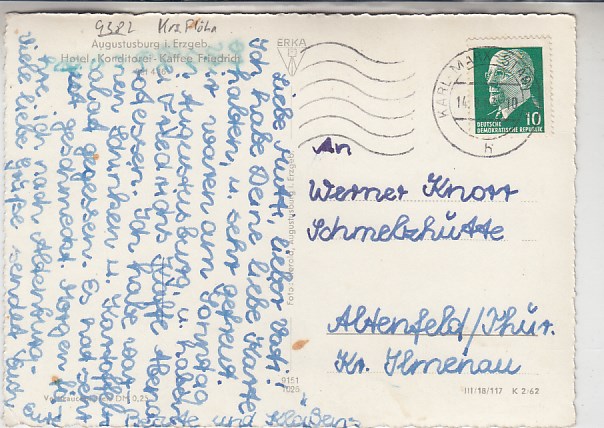 9382 Krs Flöha
Augustusburg i. Erzgeb.
Hotel - Konditorei - Kaffee Friedrich
ERKA
Liebe Mutti, lieber Vati!
Ich habe Deine liebe Karte
erhalten, u. sehr gefreut.
Wir waren am Sonntag
in Augustusburg u. haben
in Friedrichs Kaffee Abend
gegessen. Ich habe rohen
Schinken u. Kartoffel-
salat gegessen. Es hat sehr
gut geschmeckt. Morgen
ihr nach Altenburg
Viele liebe Grüße sendet Euch
Beate und Klaßens
KARL-MARX-STADT
14. 10
h
10
DEUTSCHE
DEMOKRATISCHE REPUBLIK
An
Werner Knorr
Schmelzhütte
Altenfeld/Thür.
Kr. Ilmenau
Augustusburg i. Erzgeb.
9151
7025
III/18/117 K 2/62
DN 0,25